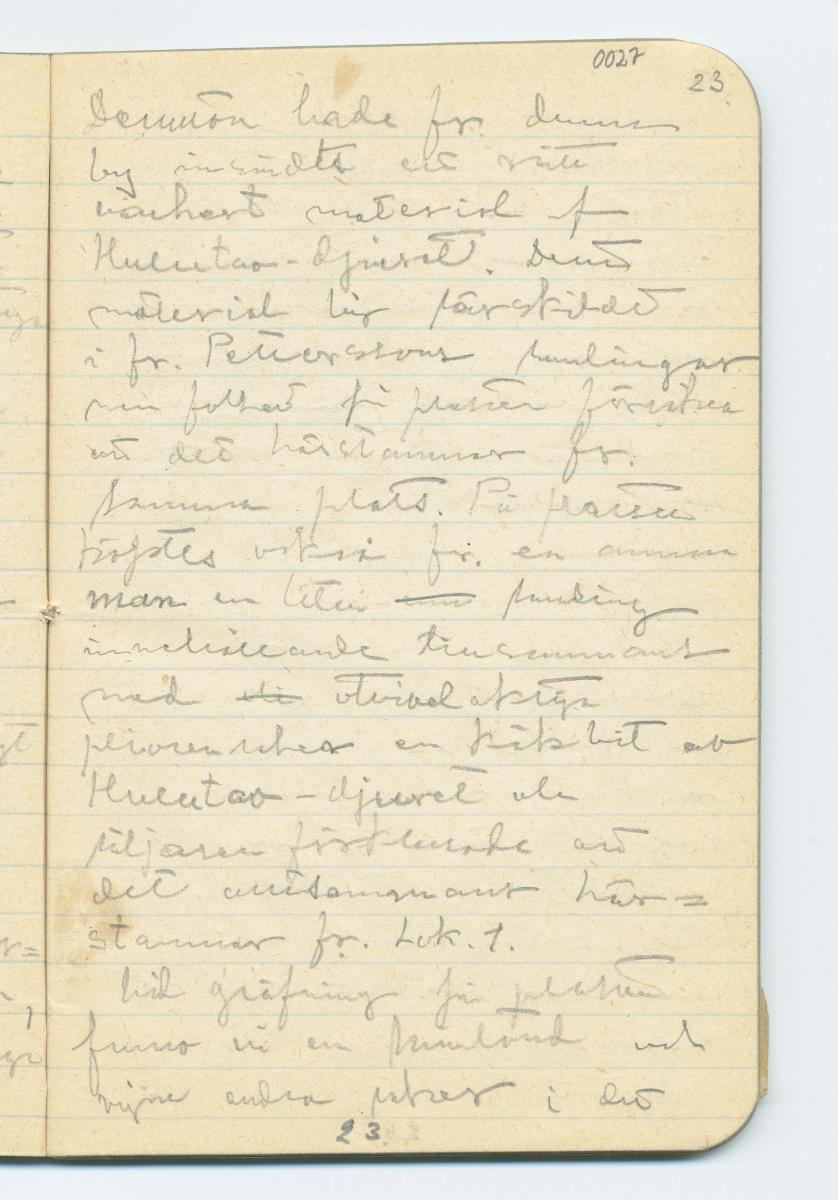 0027
23
hade fr. denna
by insändt ett rätt
vackert material af
Hulutao-djuret. Detta
material är särskildt
i fr. Petterssons samlingar
men folket på platsen försäkra
att det härstammar fr.
samma plats. På platsen
köptes också fr. en annan
man en liten samling
innehållande tillsammans
med otvivelaktiga
pliocensaker en käkbit av
Hulutao-djuret och
säljaren förklarade att
det alltsammans här=
stammar fr. Lok. 1.
Vid gräfning på platsen
funno vi en tand och
andra saker i det
23